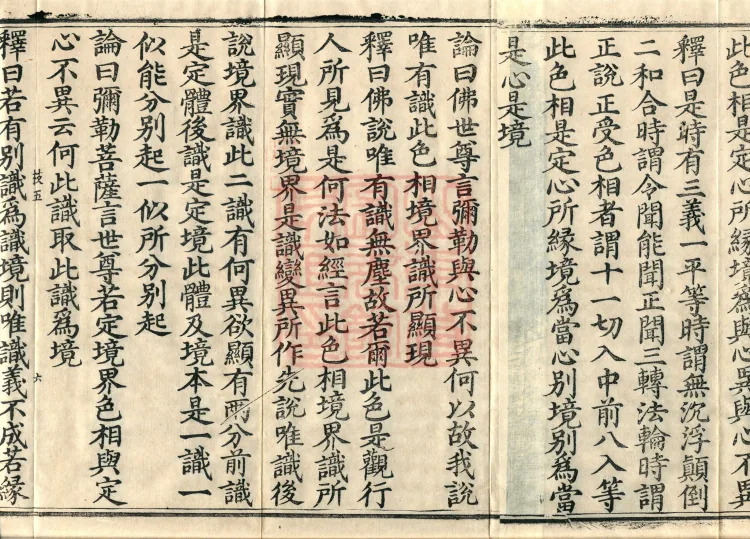 此色相是定心所緣境爲與心異與心不異
釋曰是時有三義一平等時謂無沉浮顛倒
二和合時謂令聞能聞正聞三轉法輪時謂
正說正受色相者謂十一切入中前八入等
此色相是定心所緣境爲當心別境別爲當
是心是境
論曰佛世尊言彌勒與心不異何以故我說
唯有識此色相境界識所顯現
釋曰佛說唯有識無塵故若爾此色是觀行
人所見爲是何法如經言此色相境界識所
顯現實無境界是識變異所作先說唯識後
說境界識此二識有何異欲顯有兩分前識
是定體後識是定境此體及境本是一識一
似能分別起一似所分別起
論曰彌勒菩薩言世尊若定境界色相與定
心不異云何此識取此識爲境
技五
六
釋曰若有別識爲識境則唯識義不成若緣